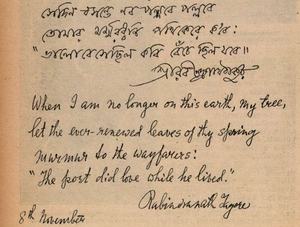 সেদিন বসন্তে নব পল্লবে পল্লবে
তোমার মর্মরধ্বনি পথিকেরে ক'বে:
"ভালোবেসেছিল কবি বেঁচে ছিল যবে॥"
শ্রীরবীন্দ্রনাথ ঠাকুর
When I am no longer on this earth, my tree,
let the ever-renewed leaves of thy spring
murmur to the wayfarers:
"The poet did love while he lived."
Rabindranath Tagore
8th November